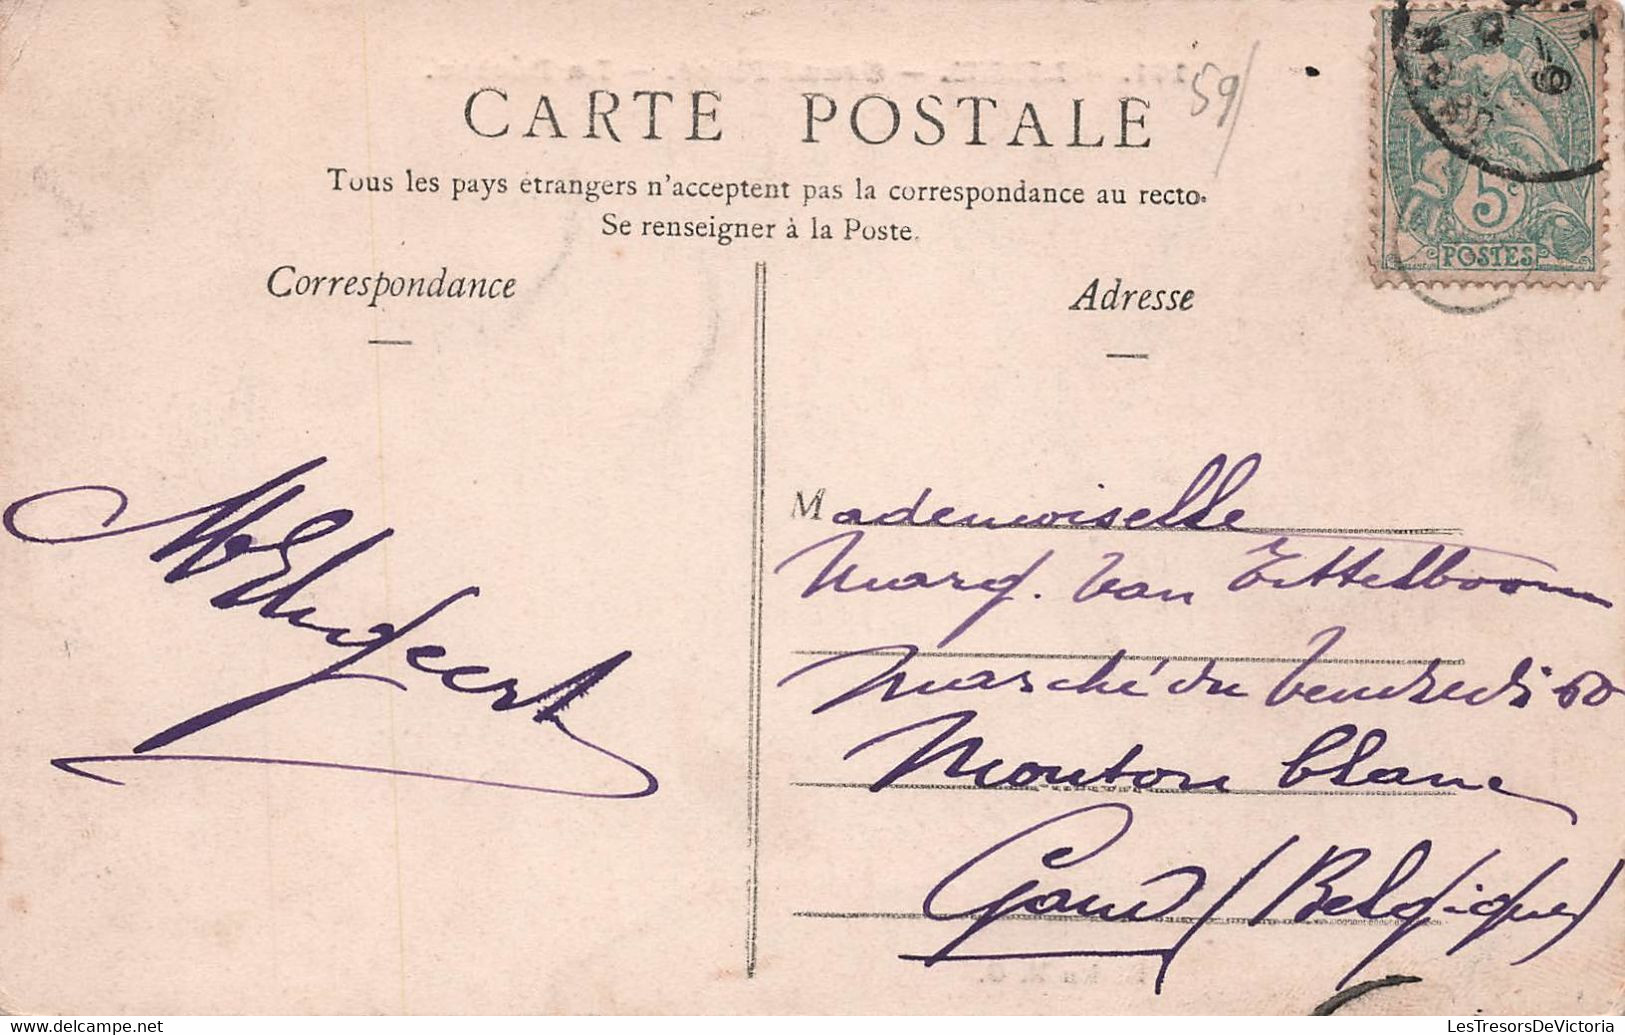 CARTE POSTALE
59
Tous les pays étrangers n'acceptent pas la correspondance au recto.
Se renseigner à la Poste.
Correspondance
Adresse
5c
POSTES
Mademoiselle
Marg. Van Eettelboom
Marché du Vendredi 60
Mouton blanc
Gand (Belgique)
LesTresorsDeVictoria